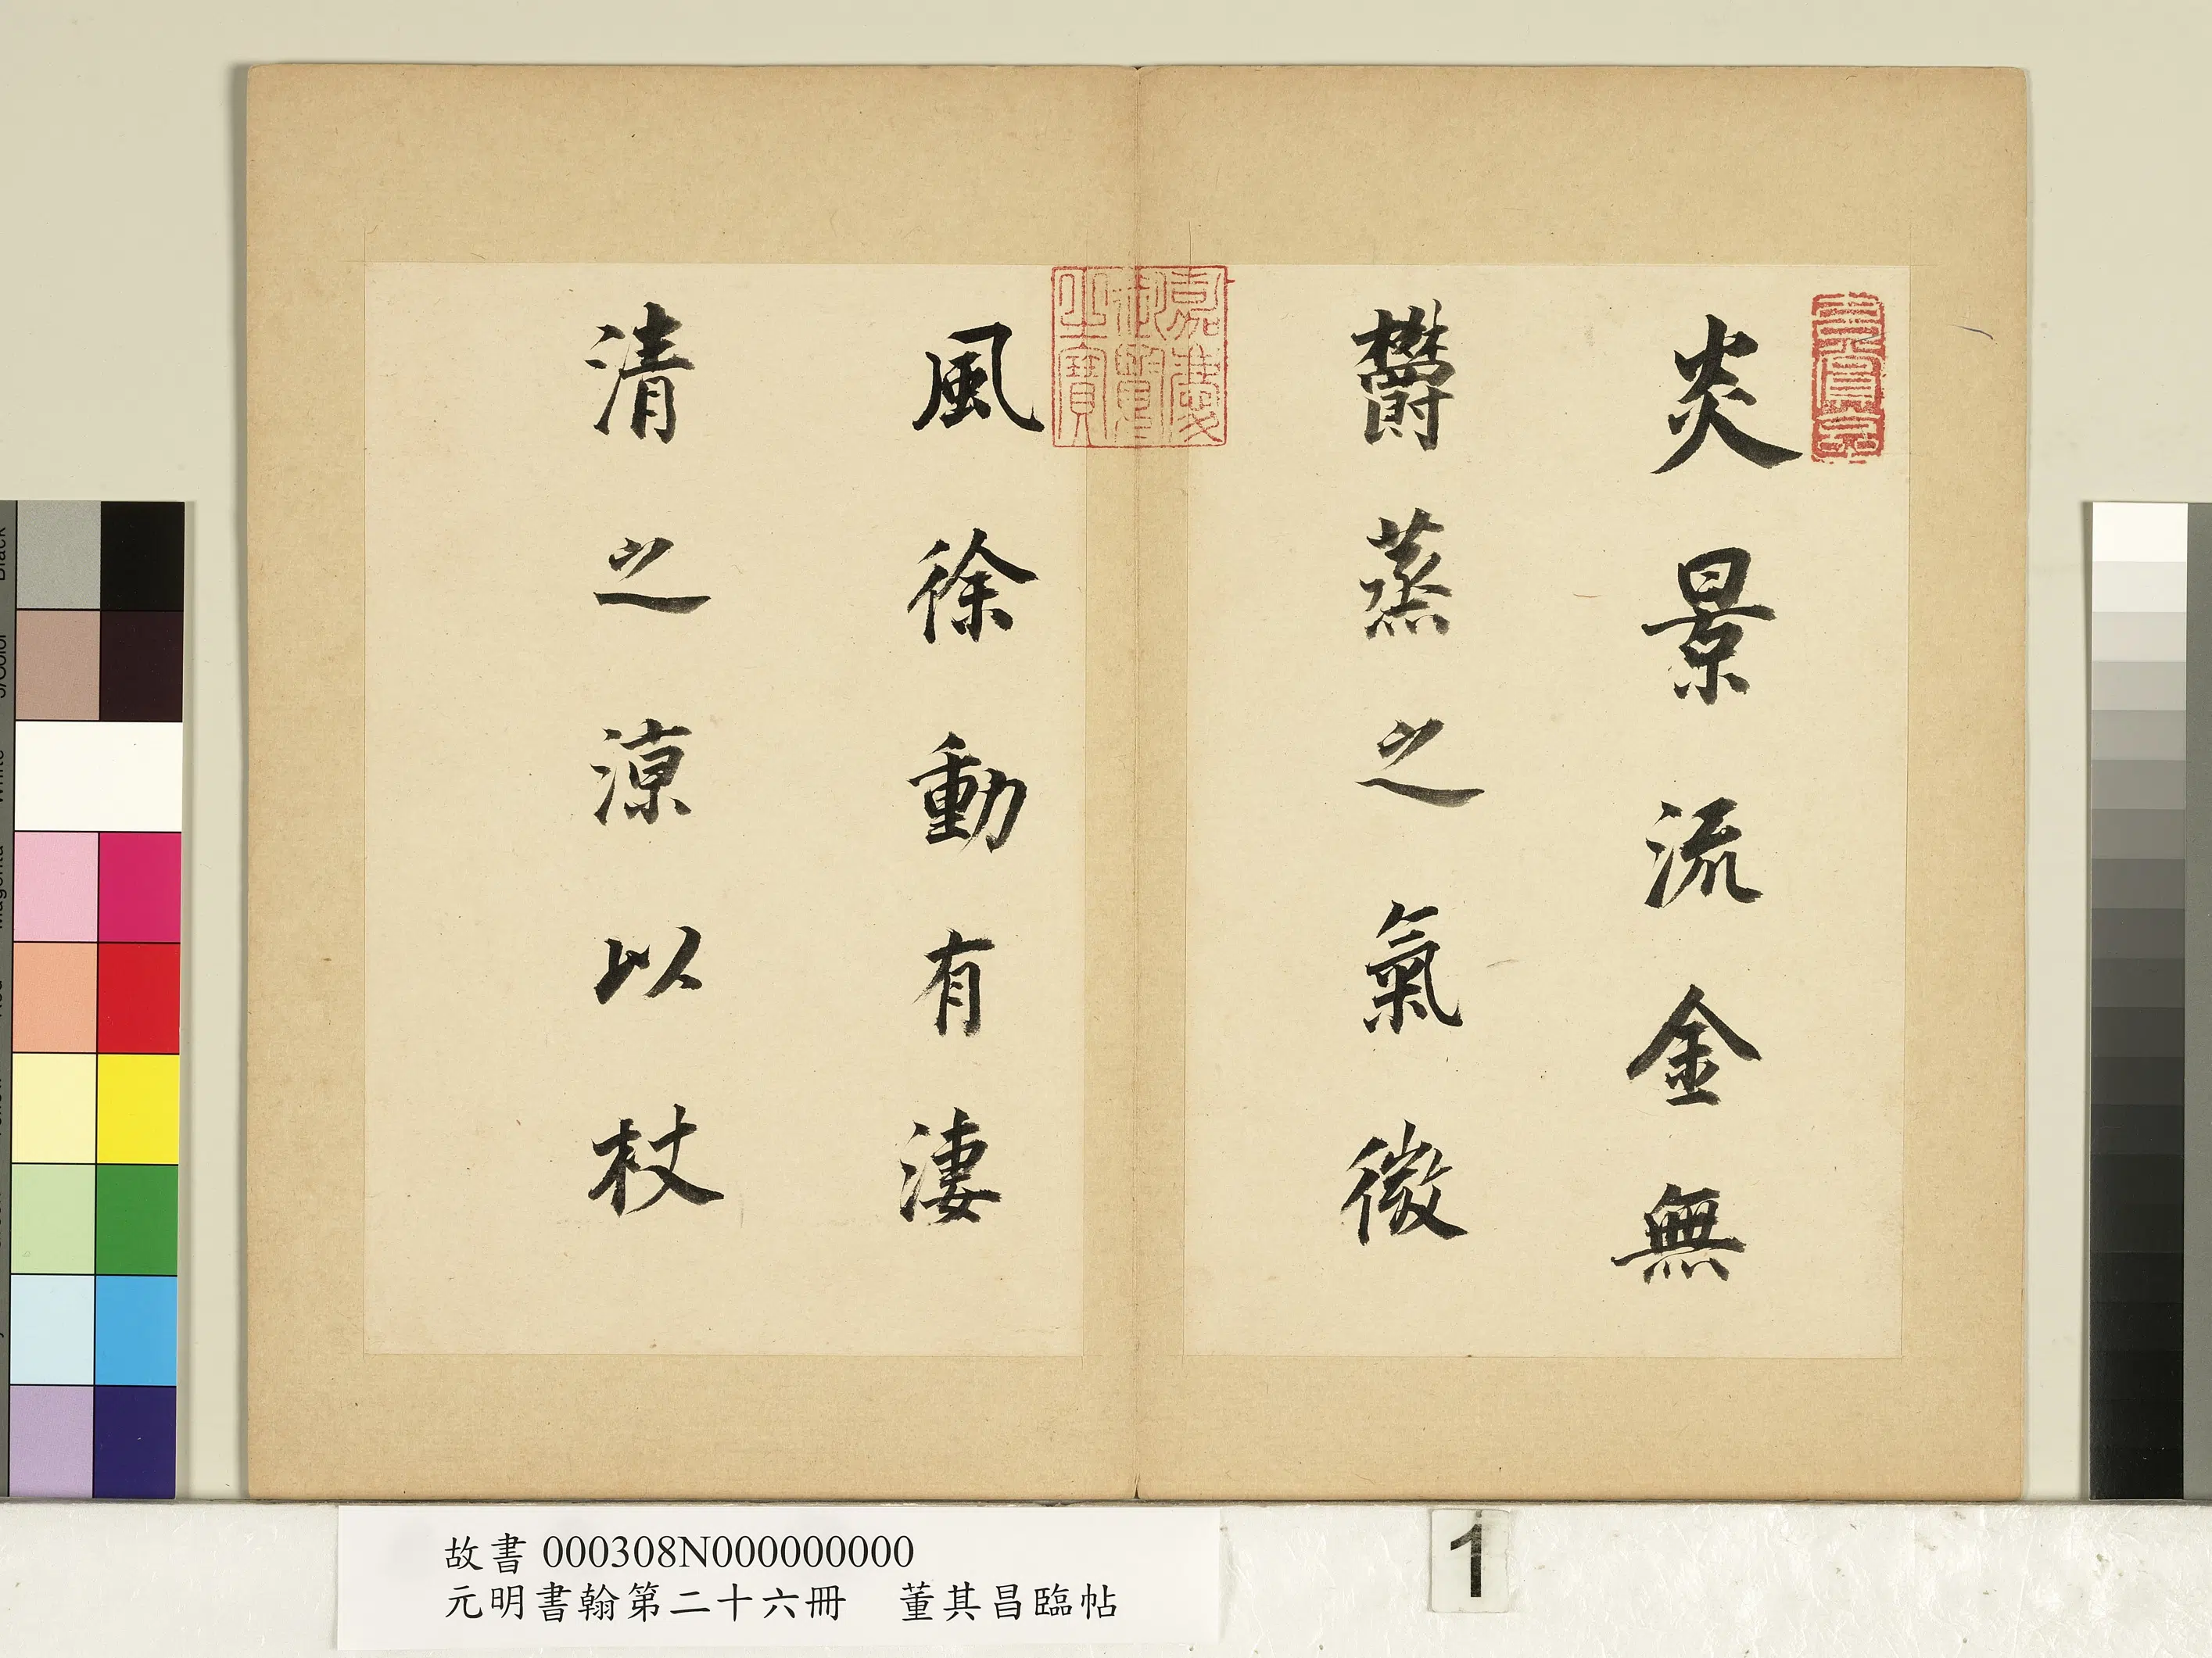 炎景流金無
欝蒸之氣微
風徐動有淒
清之涼以杖
嘉慶御覽之寶
故書 000308N000000000
元明書翰第二十六冊 董其昌臨帖
1